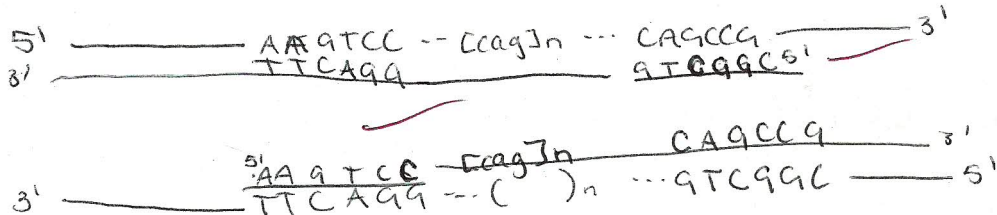 5' AAGTCC -- [cag]n ... CAGCCG 3'
3' TTCAGG GTCGGC 5'
5' AAGTCC [cag]n CAGCCG 3'
3' TTCAGG ---( )n ...GTCGGC 5'